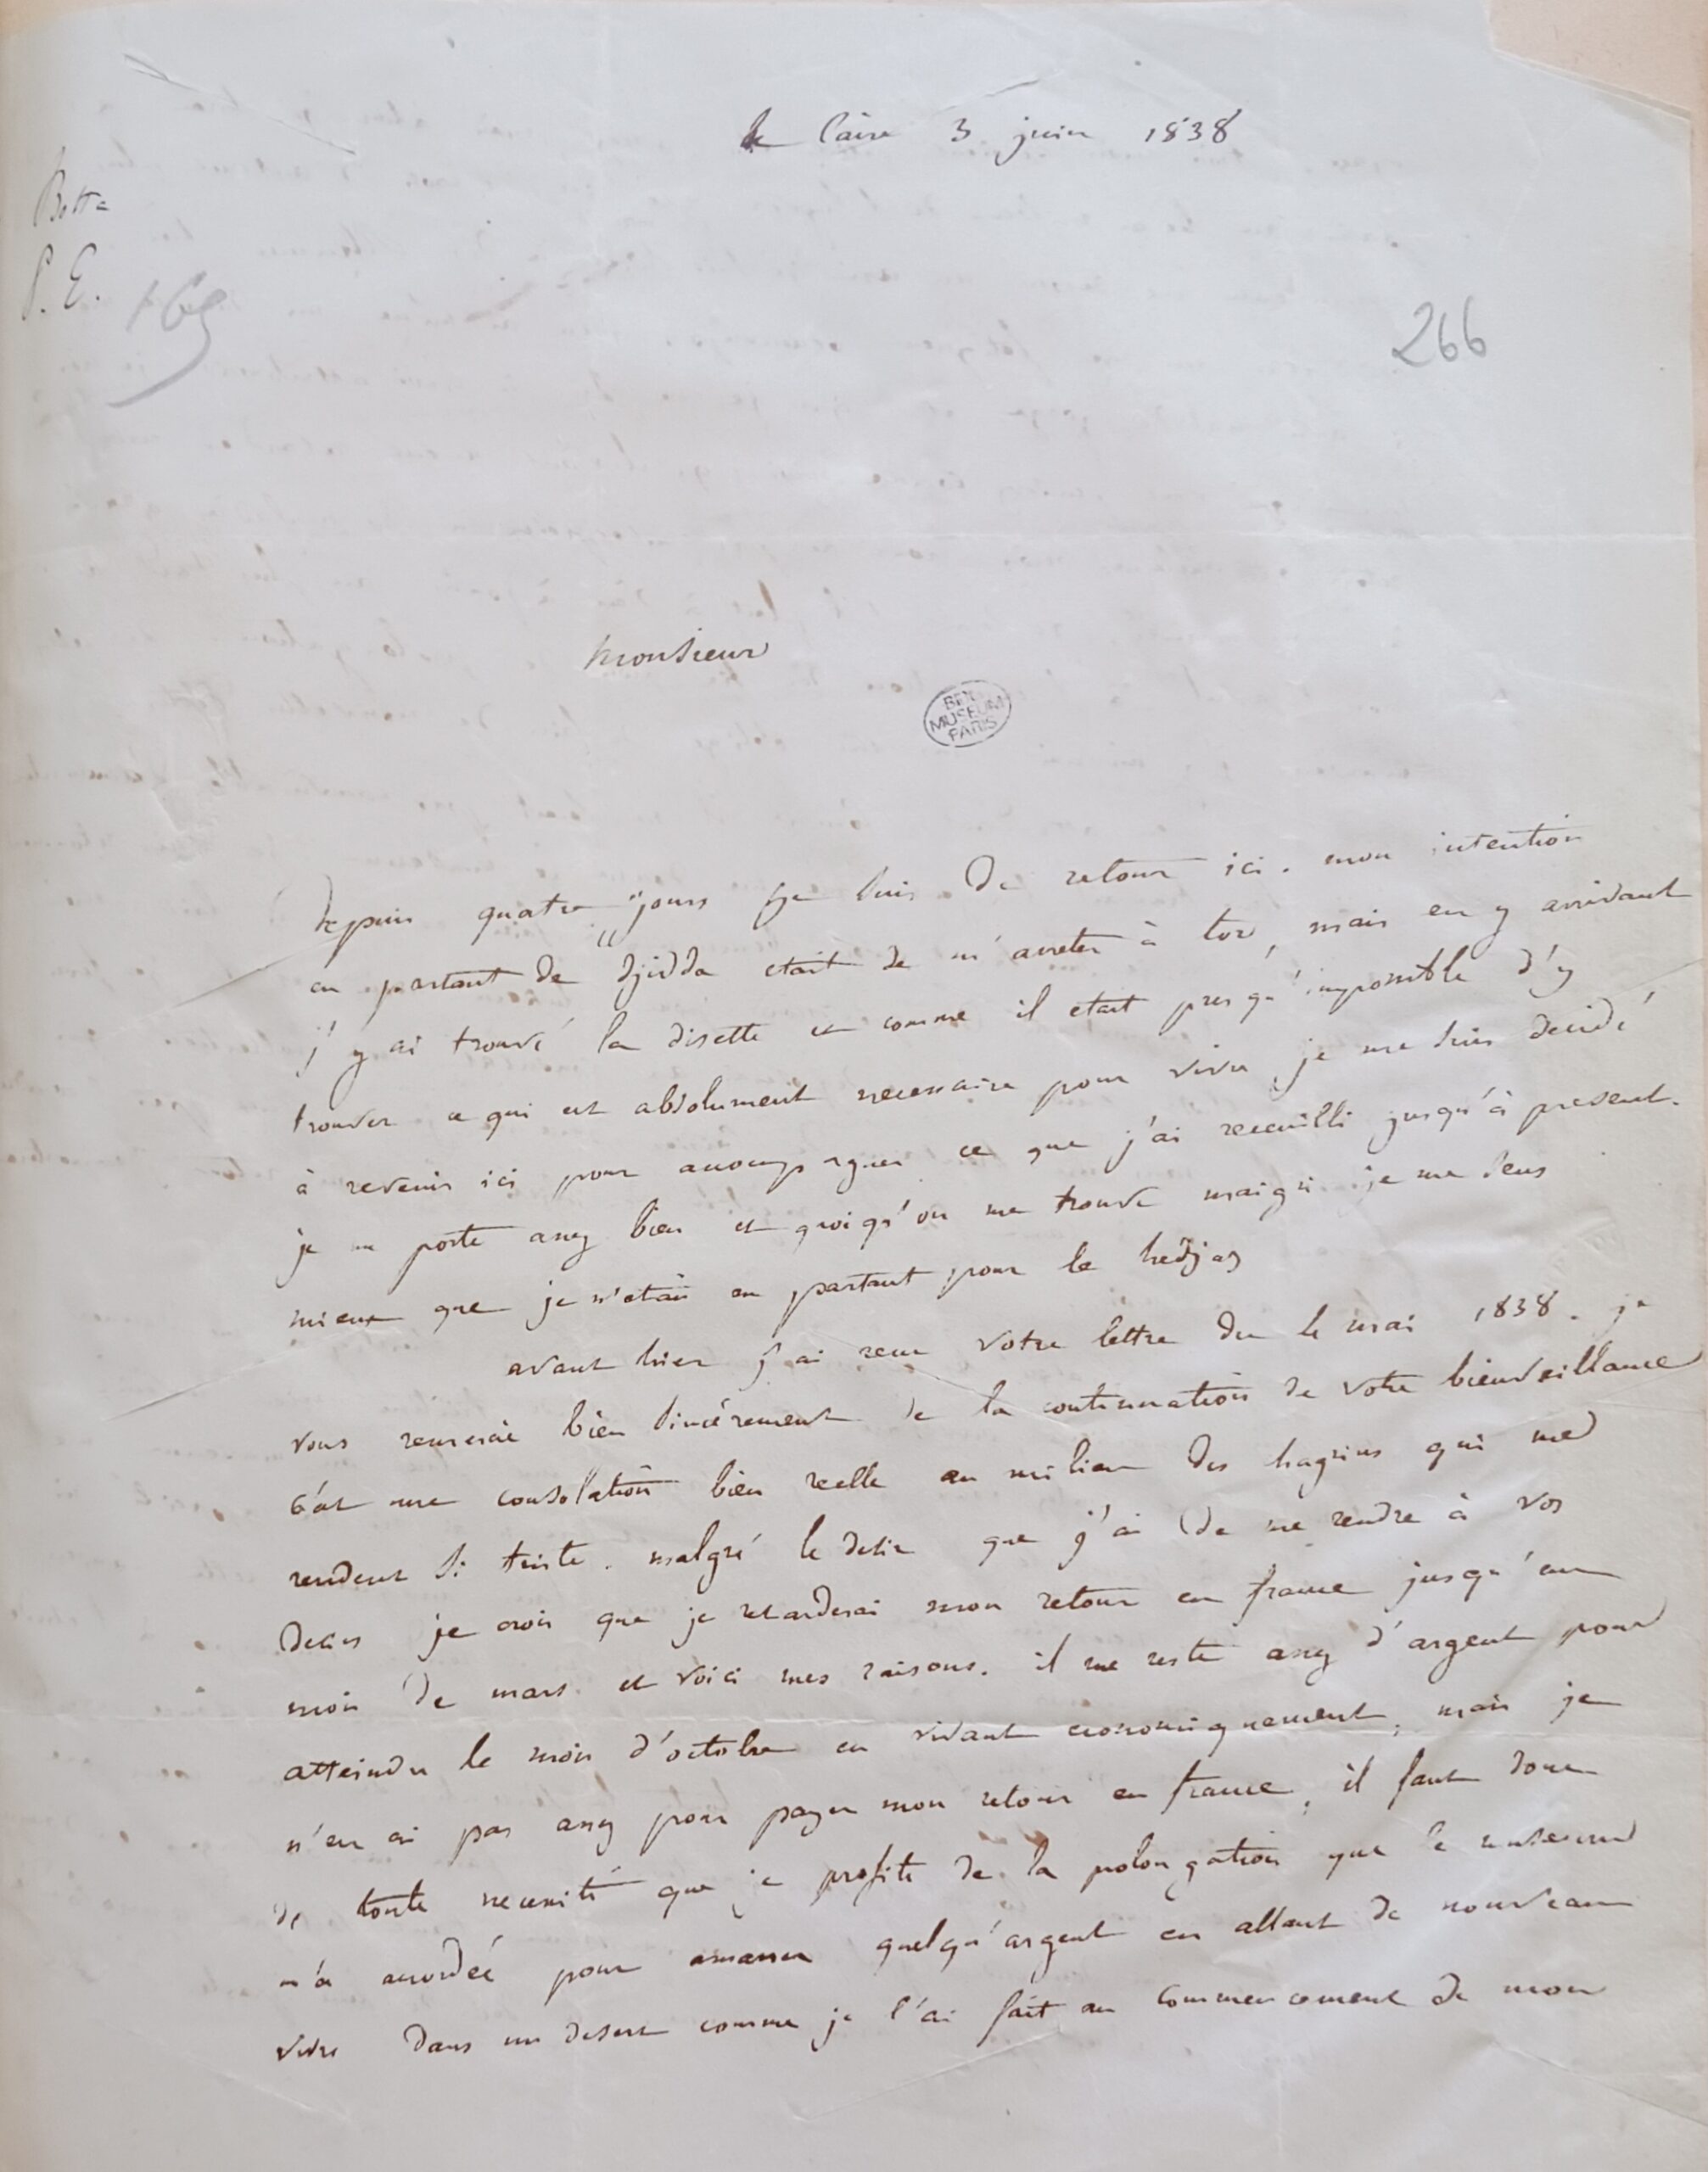 le Caire 3 juin 1838
Botta
P. E.
169
266
Monsieur
BIB.
MUSEUM
PARIS
depuis quatre jours je suis de retour ici. mon intention
en partant de djidda etait de m'arreter à tor, mais en y arrivant
j'y ai trouvé la disette et comme il etait presqu'impossible d'y
trouver ce qui est absolument necessaire pour vivre, je me suis decidé
à revenir ici pour accompagner ce que j'ai recueilli jusqu'à present.
je me porte assez bien et quoiqu'on me trouve maigri je me sens
mieux que je n'etais en partant pour le hedjaz
avant hier j'ai recu votre lettre du mai 1838. je
vous remercie bien sincérement de la continuation de votre bienveillance
c'est une consolation bien reelle au milieu des chagrins qui me
rendent si triste. malgré le desir que j'ai de me rendre à vos
desirs je crois que je retarderai mon retour en france jusqu'au
mois de mars et voici mes raisons. il me reste assez d'argent pour
atteindre le mois d'octobre en vivant economiquement, mais je
n'en ai pas assez pour payer mon retour en france, il faut donc
de toute necessité que je profite de la prolongation que le museum
m'a accordée pour amasser quelqu'argent en allant de nouveau
vivre dans un desert comme je l'ai fait au commencement de mon